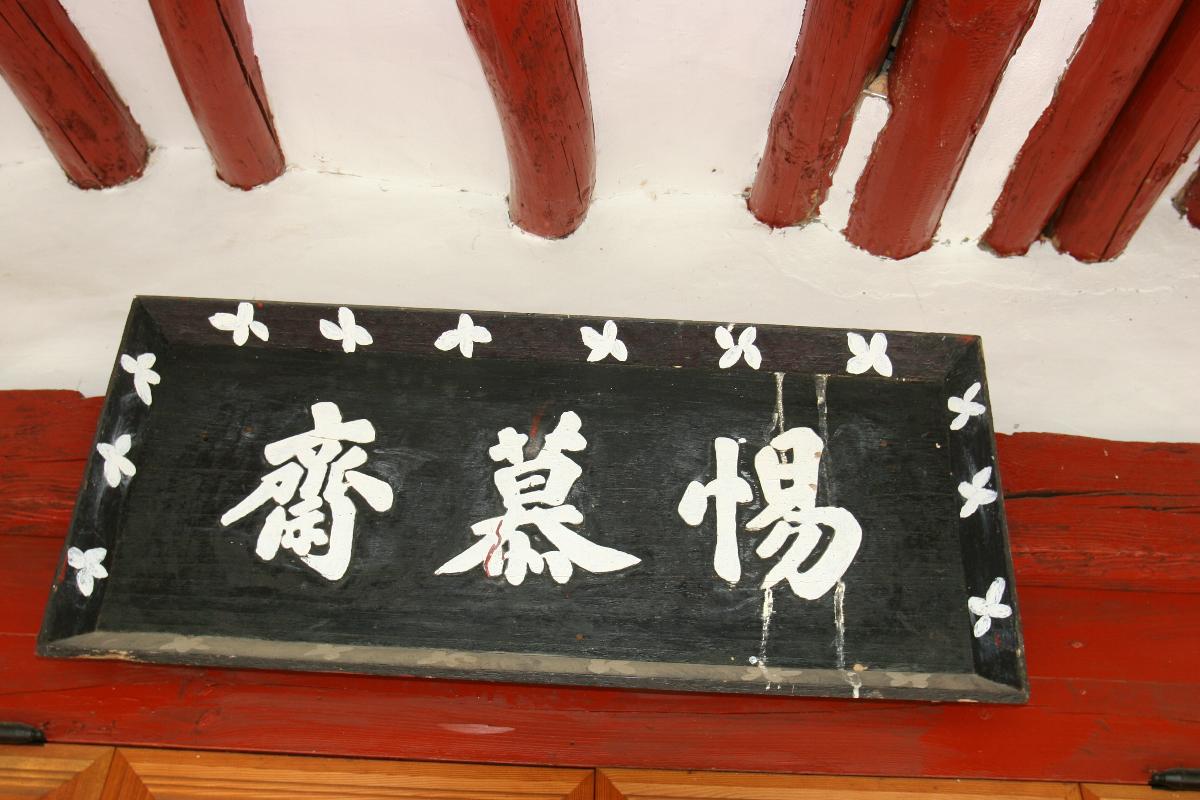 惕慕齋